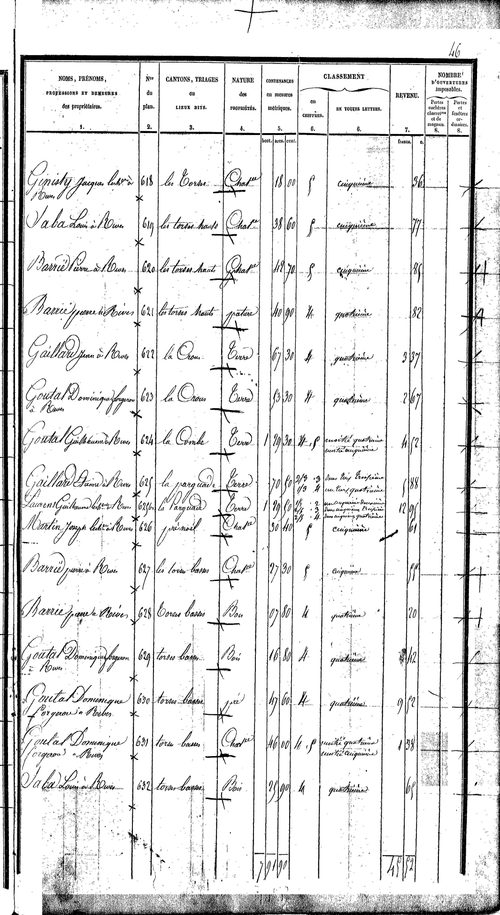 46
NOMS, PRÉNOMS, PROFESSIONS ET DEMEURES des propriétaires. Nos du plan. CANTONS, TRIAGES ou LIEUX DITS. NATURE des PROPRIÉTÉS. CONTENANCES en mesures métriques. CLASSEMENT en CHIFFRES. EN TOUTES LETTRES. REVENU. NOMBRE D'OUVERTURES imposables. Portes cochères charret.res et de magasin. Portes et fenêtres ordinaires.
1. 2. 3. 4. 5. 6. 6. 7. 8. 8.
hect. ares. cent. francs. c.
Jacques à Rives 618 les Torses Chat.re 18 00 5 cinquième 36
Saba Louis à Rives 619 les torses hauts Chat.re 38 60 5 cinquième 77
Barrié Pierre à Rives 620 les torses haut Chat.re 42 70 5 cinquième 85
Barrié pierre à Rives 621 les torses hauts pature 40 90 4 quatrième 82
Gaillard Jean à Rives 622 la Croux Terre 67 30 4 quatrième 3 37
Goutal Dominique forgeron à Rives 623 la Croux Terre 53 30 4 quatrième 2 67
Goutal Guillaume à Rives 624 la Combe Terre 1 29 30 4 5 moitié quatrième moitié cinquième 4 52
Gaillard à Rives 625 Terre 70 50 2/3 3 1/3 4 deux tiers troisième un tiers quatrième 5 88
Laurens Guillaume à Rives Terre 1 29 50 12 95
Martin Joseph à Rives 626 Chat.re 30 40 5 cinquième 61
Barrié pierre à Rives 627 les torses basses Chat.re 27 30 5 cinquième 55
Barrié pierre à Rives 628 Torses basses Bois 07 80 4 quatrième 20
Goutal Dominique forgeron à Rives 629 torses basses Bois 16 80 4 quatrième 42
Goutal Dominique forgeron à Rives 630 torses basses pré 47 60 4 quatrième 9 52
Goutal Dominique forgeron à Rives 631 torses basses Chat.re 46 00 4 5 moitié quatrième moitié cinquième 1 38
Saba Louis à Rives 632 torses basses Bois 25 90 4 quatrième 65
7 91 90 45 52